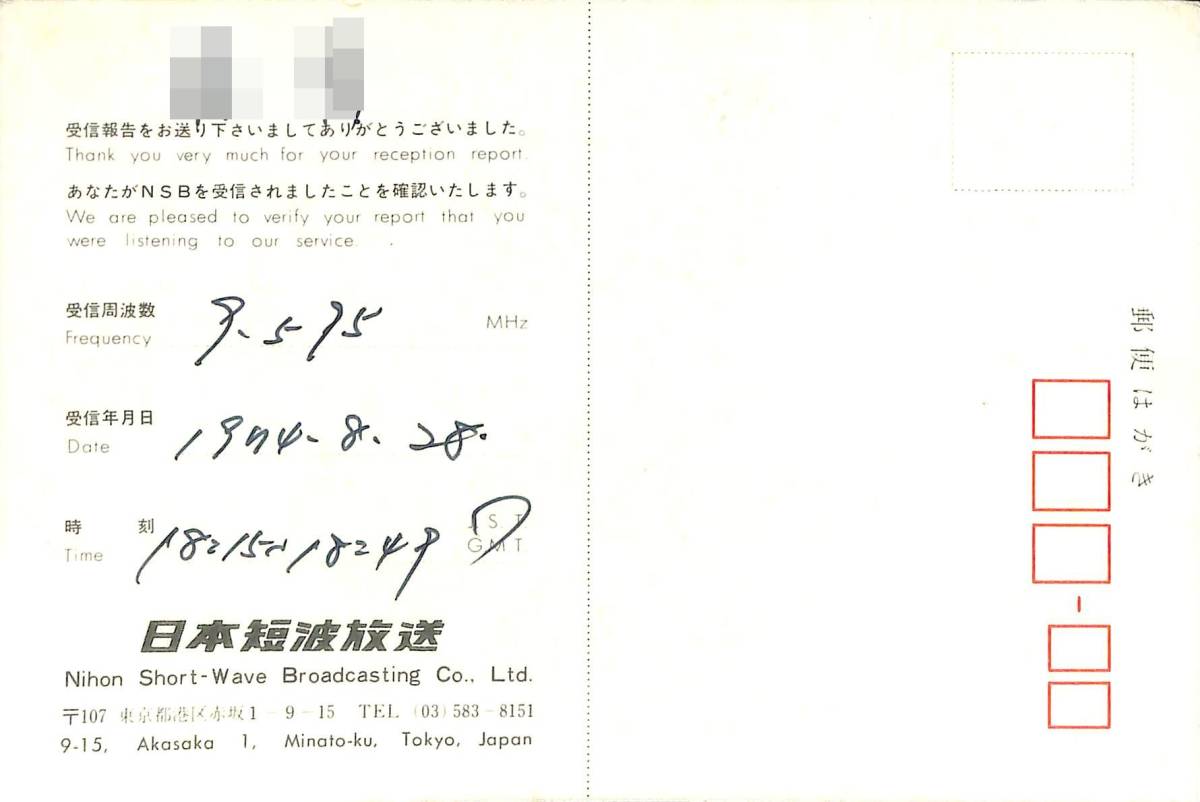 受信報告をお送り下さいましてありがとうございました。
Thank you very much for your reception report.
あなたがNSBを受信されましたことを確認いたします。
We are pleased to verify your report that you
were listening to our service.
受信周波数
Frequency
9.595 MHz
受信年月日
Date
1974.8.28.
時 刻
Time
18:15~18:49
J.S.T
G M T
日本短波放送
Nihon Short-Wave Broadcasting Co., Ltd.
〒107 東京都港区赤坂1-9-15 TEL (03)583-8151
9-15, Akasaka 1, Minato-ku, Tokyo, Japan
郵便はがき